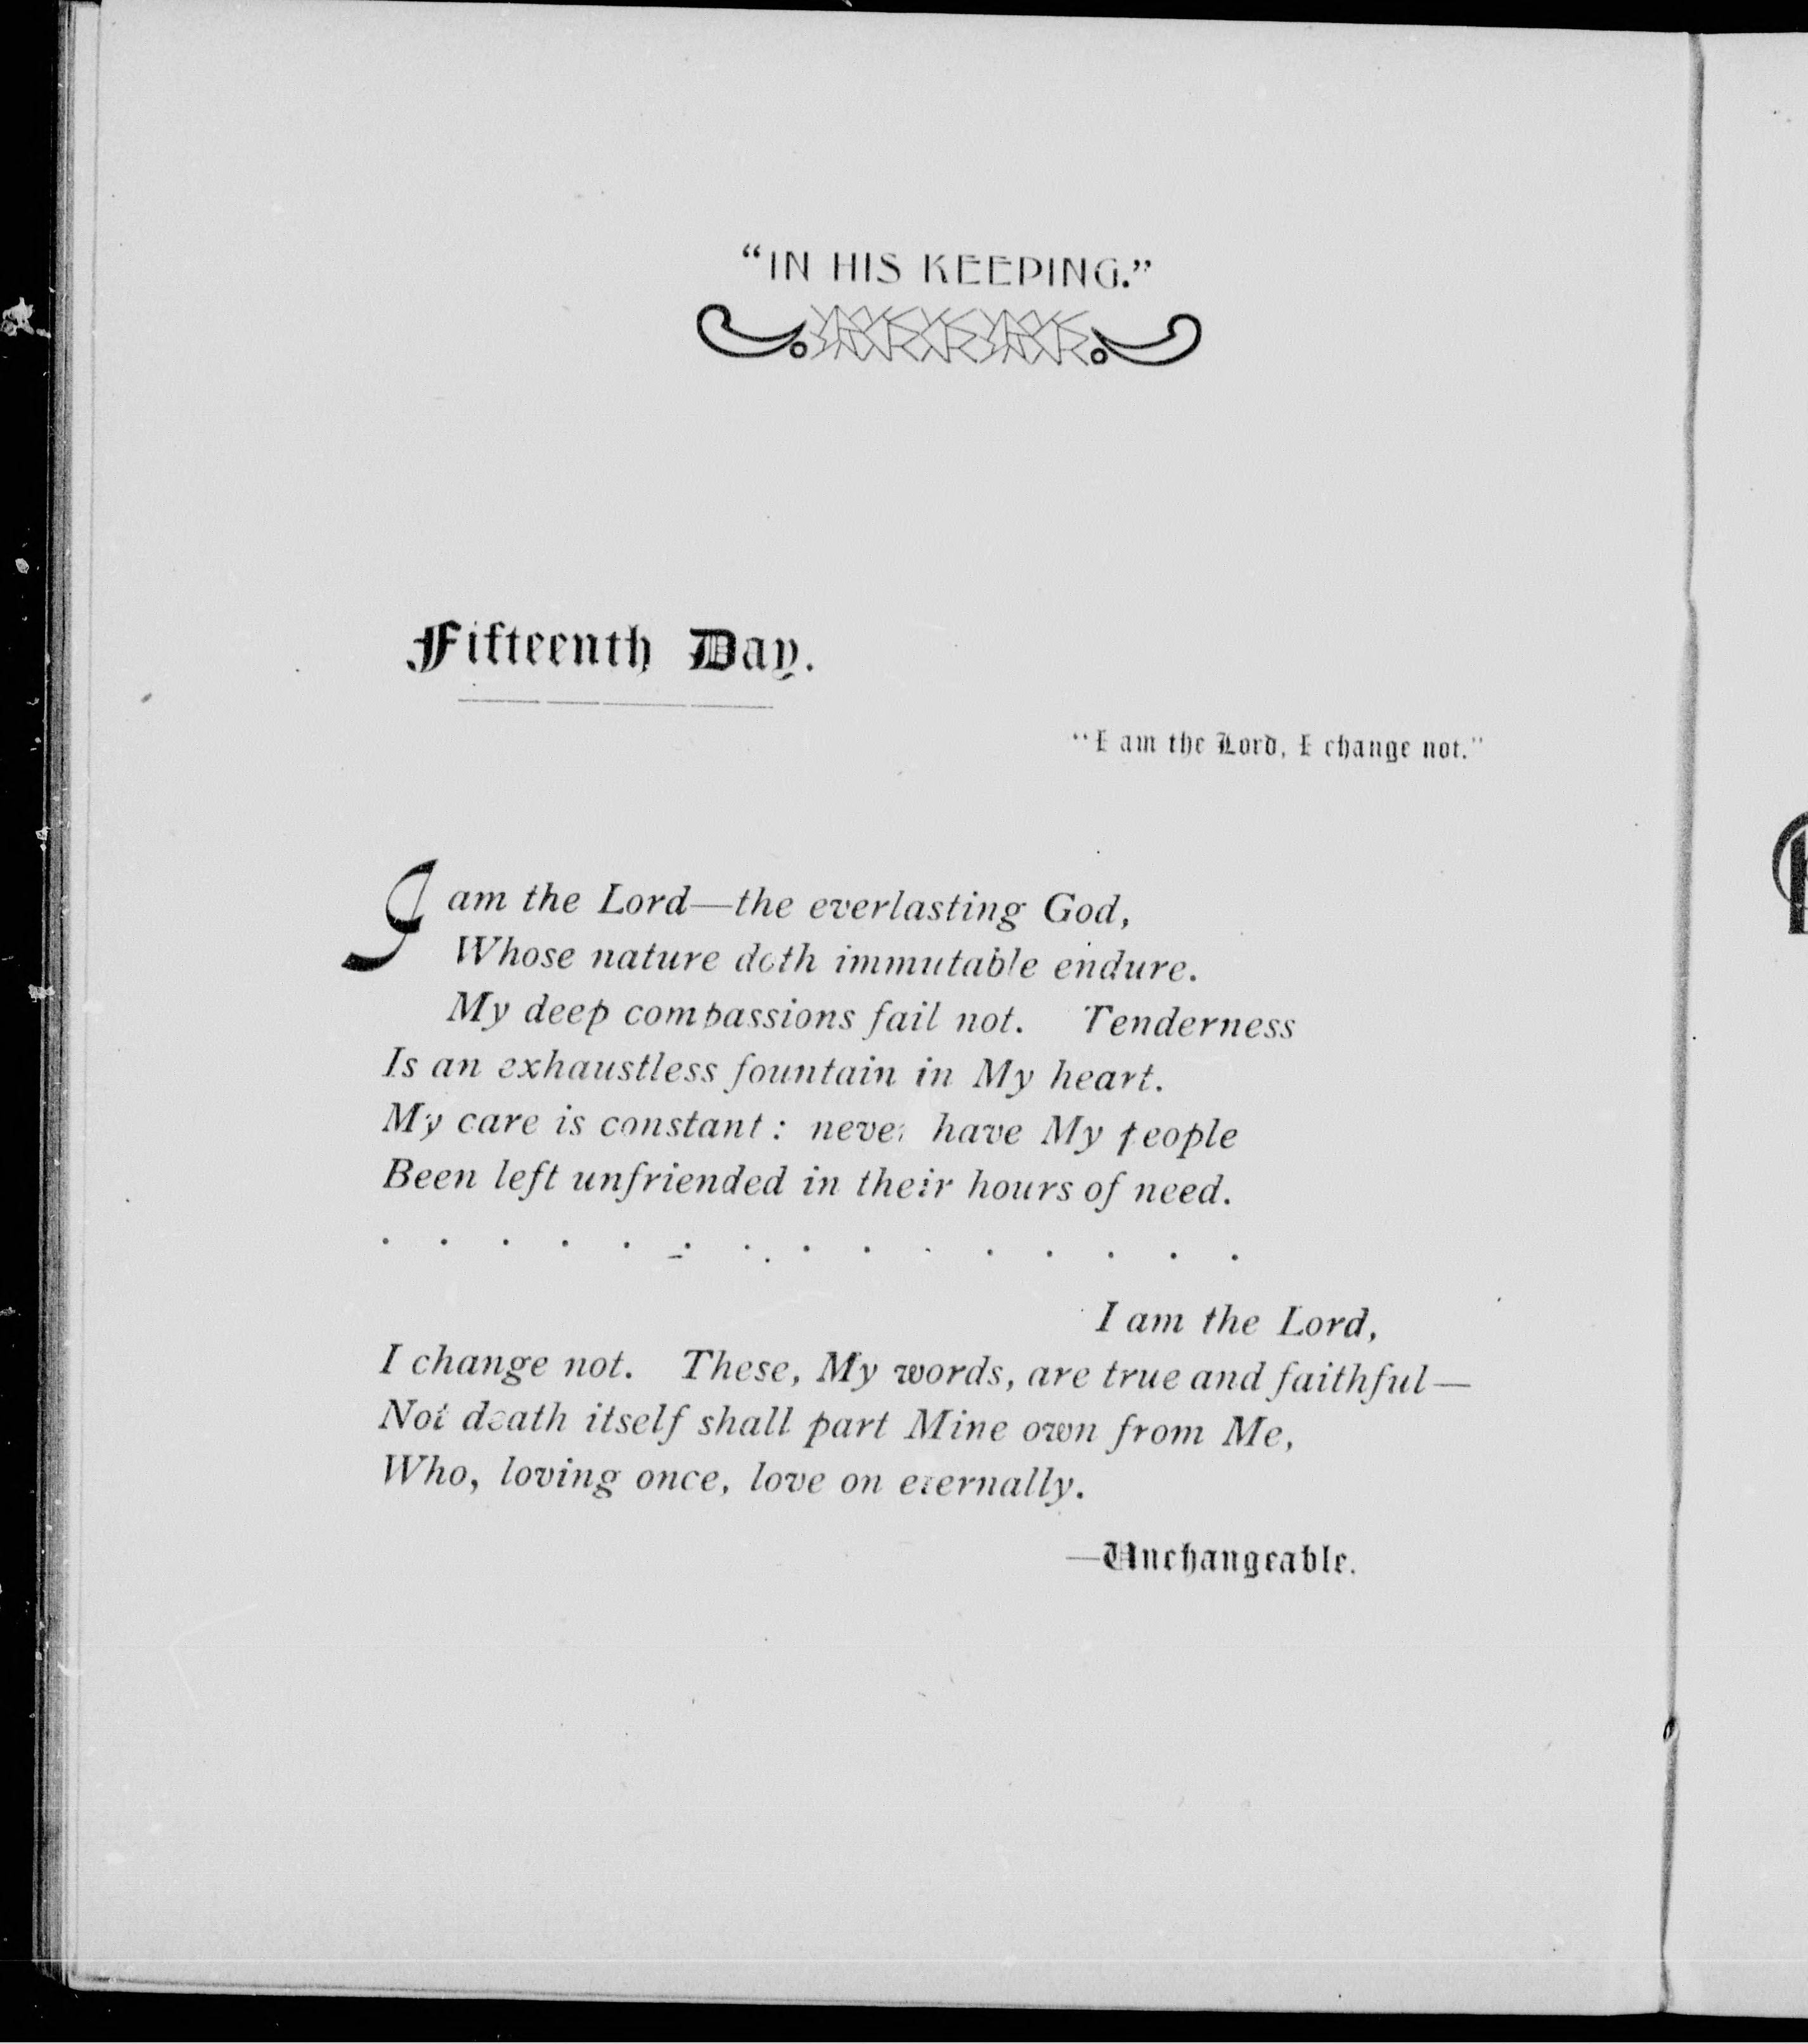 “IN HIS KEEPING.”
Fifteenth Day.
“I am the Lord, I change not.”
I am the Lord—the everlasting God,
Whose nature doth immutable endure.
My deep compassions fail not. Tenderness
Is an exhaustless fountain in My heart.
My care is constant: never have My people
Been left unfriended in their hours of need.
. . . . . . . . . . . . . . .
I am the Lord,
I change not. These, My words, are true and faithful—
Not death itself shall part Mine own from Me,
Who, loving once, love on eternally.
—Unchangeable.